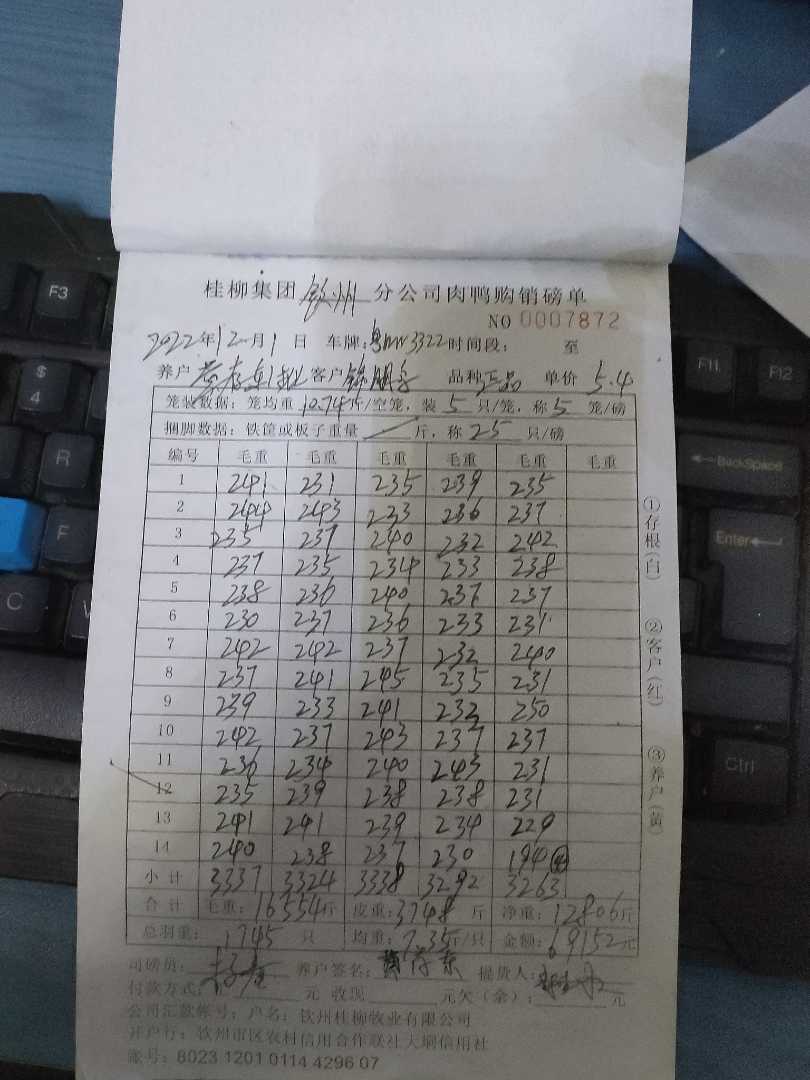 F3
$
4
R
F
C
F11
F12
BackSpace
Enter
Ctrl
桂柳集团 钦州 分公司肉鸭购销磅单
NO 0007872
2022年12月1日 车牌: 3322 时间段: 至
养户 客户 品种 正品 单价 5.4
笼装数据: 笼均重 10.74斤/空笼, 装 5 只/笼, 称 5 笼/磅
捆脚数据: 铁筐或板子重量 斤, 称 25 只/磅
编号 毛重 毛重 毛重 毛重 毛重 毛重
1 241 231 235 239 235
2 244 243 233 236 237
3 235 237 240 232 242
4 237 235 234 233 238
5 238 236 240 237 237
6 230 237 236 233 231
7 242 242 237 232 240
8 237 241 245 235 231
9 239 233 241 232 250
10 242 237 243 237 237
11 236 234 240 243 231
12 235 239 238 238 231
13 241 241 239 234 229
14 240 238 237 230 194
小计 3337 3324 3338 3292 3263
合计 毛重: 16554斤 皮重: 3748 斤 净重: 12806斤
总羽重: 1745 只 均重: 7.35斤/只 金额: 69152元
司磅员: 养户签名: 提货人:
付款方式: 元 收现 元欠(余): 元
公司汇款帐号: 户名: 钦州桂柳牧业有限公司
开户行: 钦州市区农村信用合作联社大垌信用社
账号: 8023 1201 0114 4296 07
①存根(白) ②客户(红) ③养户(黄)